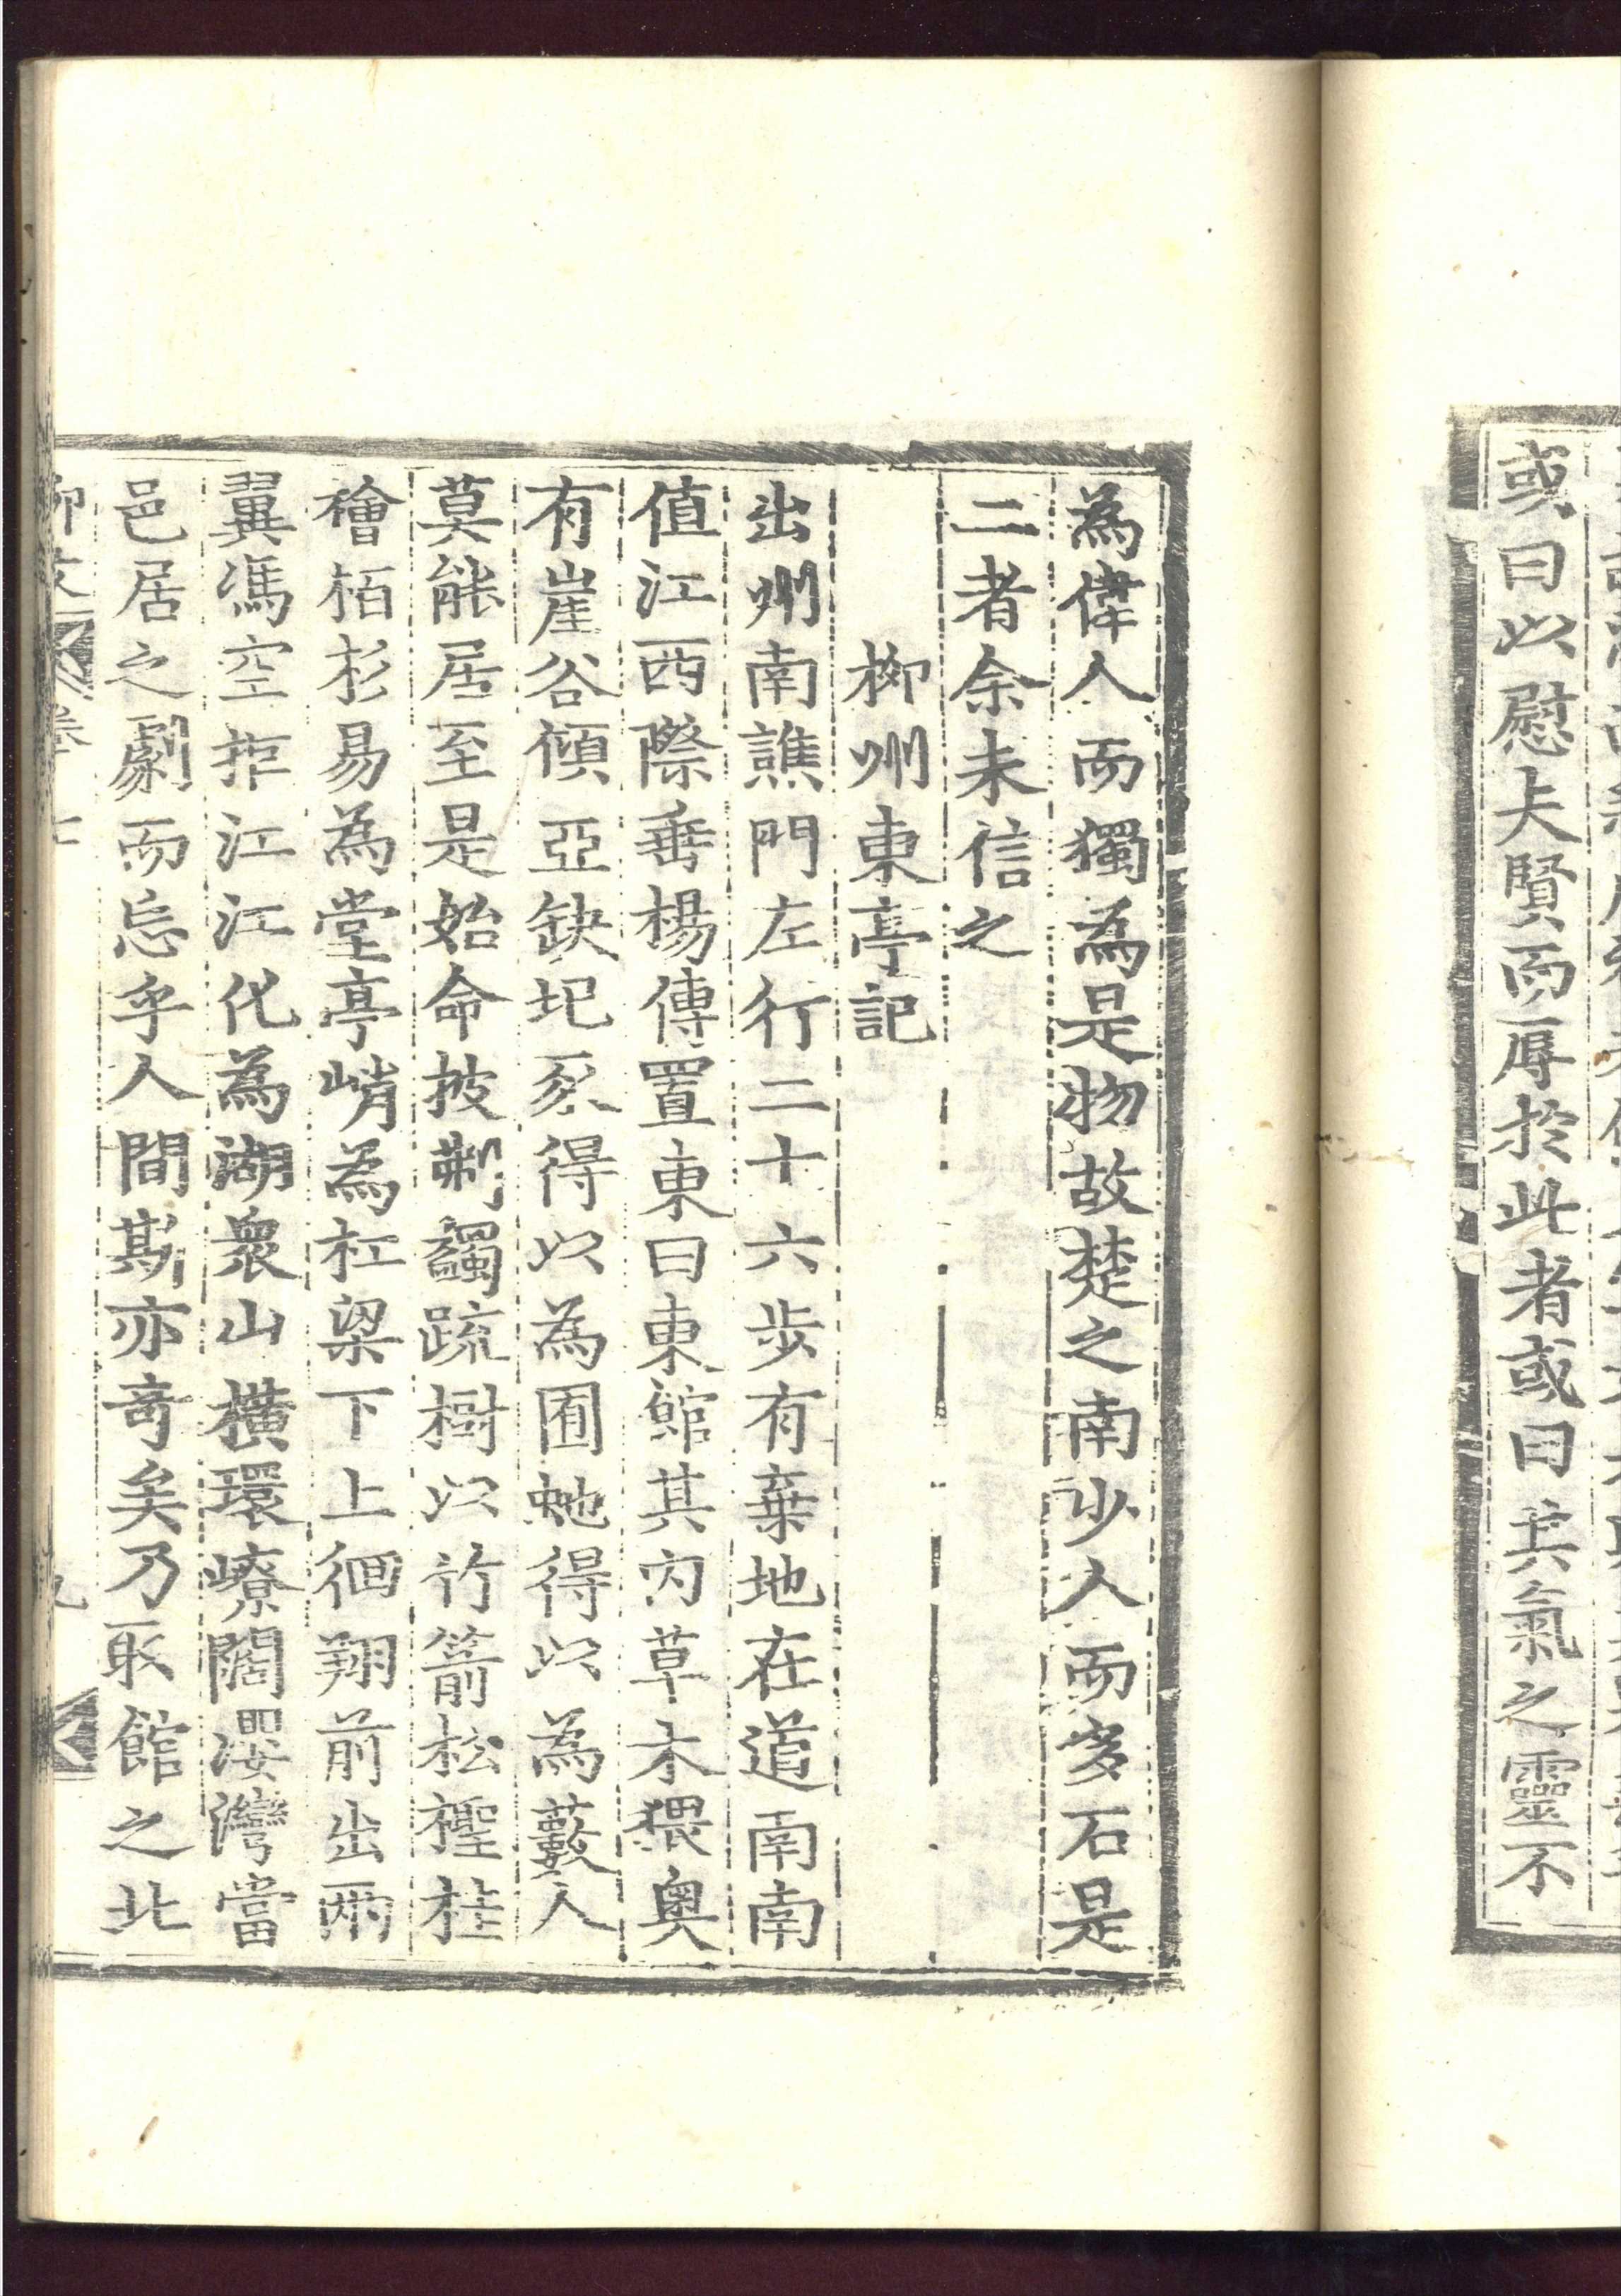 或曰以慰夫賢而辱於此者或曰其氣之靈不
為偉人而獨為是物故楚之南少人而多石是
二者余未信之
柳州東亭記
出州南譙門左行二十六步有棄地在道南南
值江西際垂楊傳置東曰東館其內草木猥奧
有崖谷傾亞缺圮豕得以為囿虵得以為藪人
莫能居至是始命披㓨蠲疏樹以竹箭松檉桂
檜栢杉易為堂亭峭為杠梁下上徊翔前出兩
翼馮空拒江江化為湖衆山橫環嶛闊瀴灣當
邑居之劇而忘乎人間斯亦竒矣乃取館之北